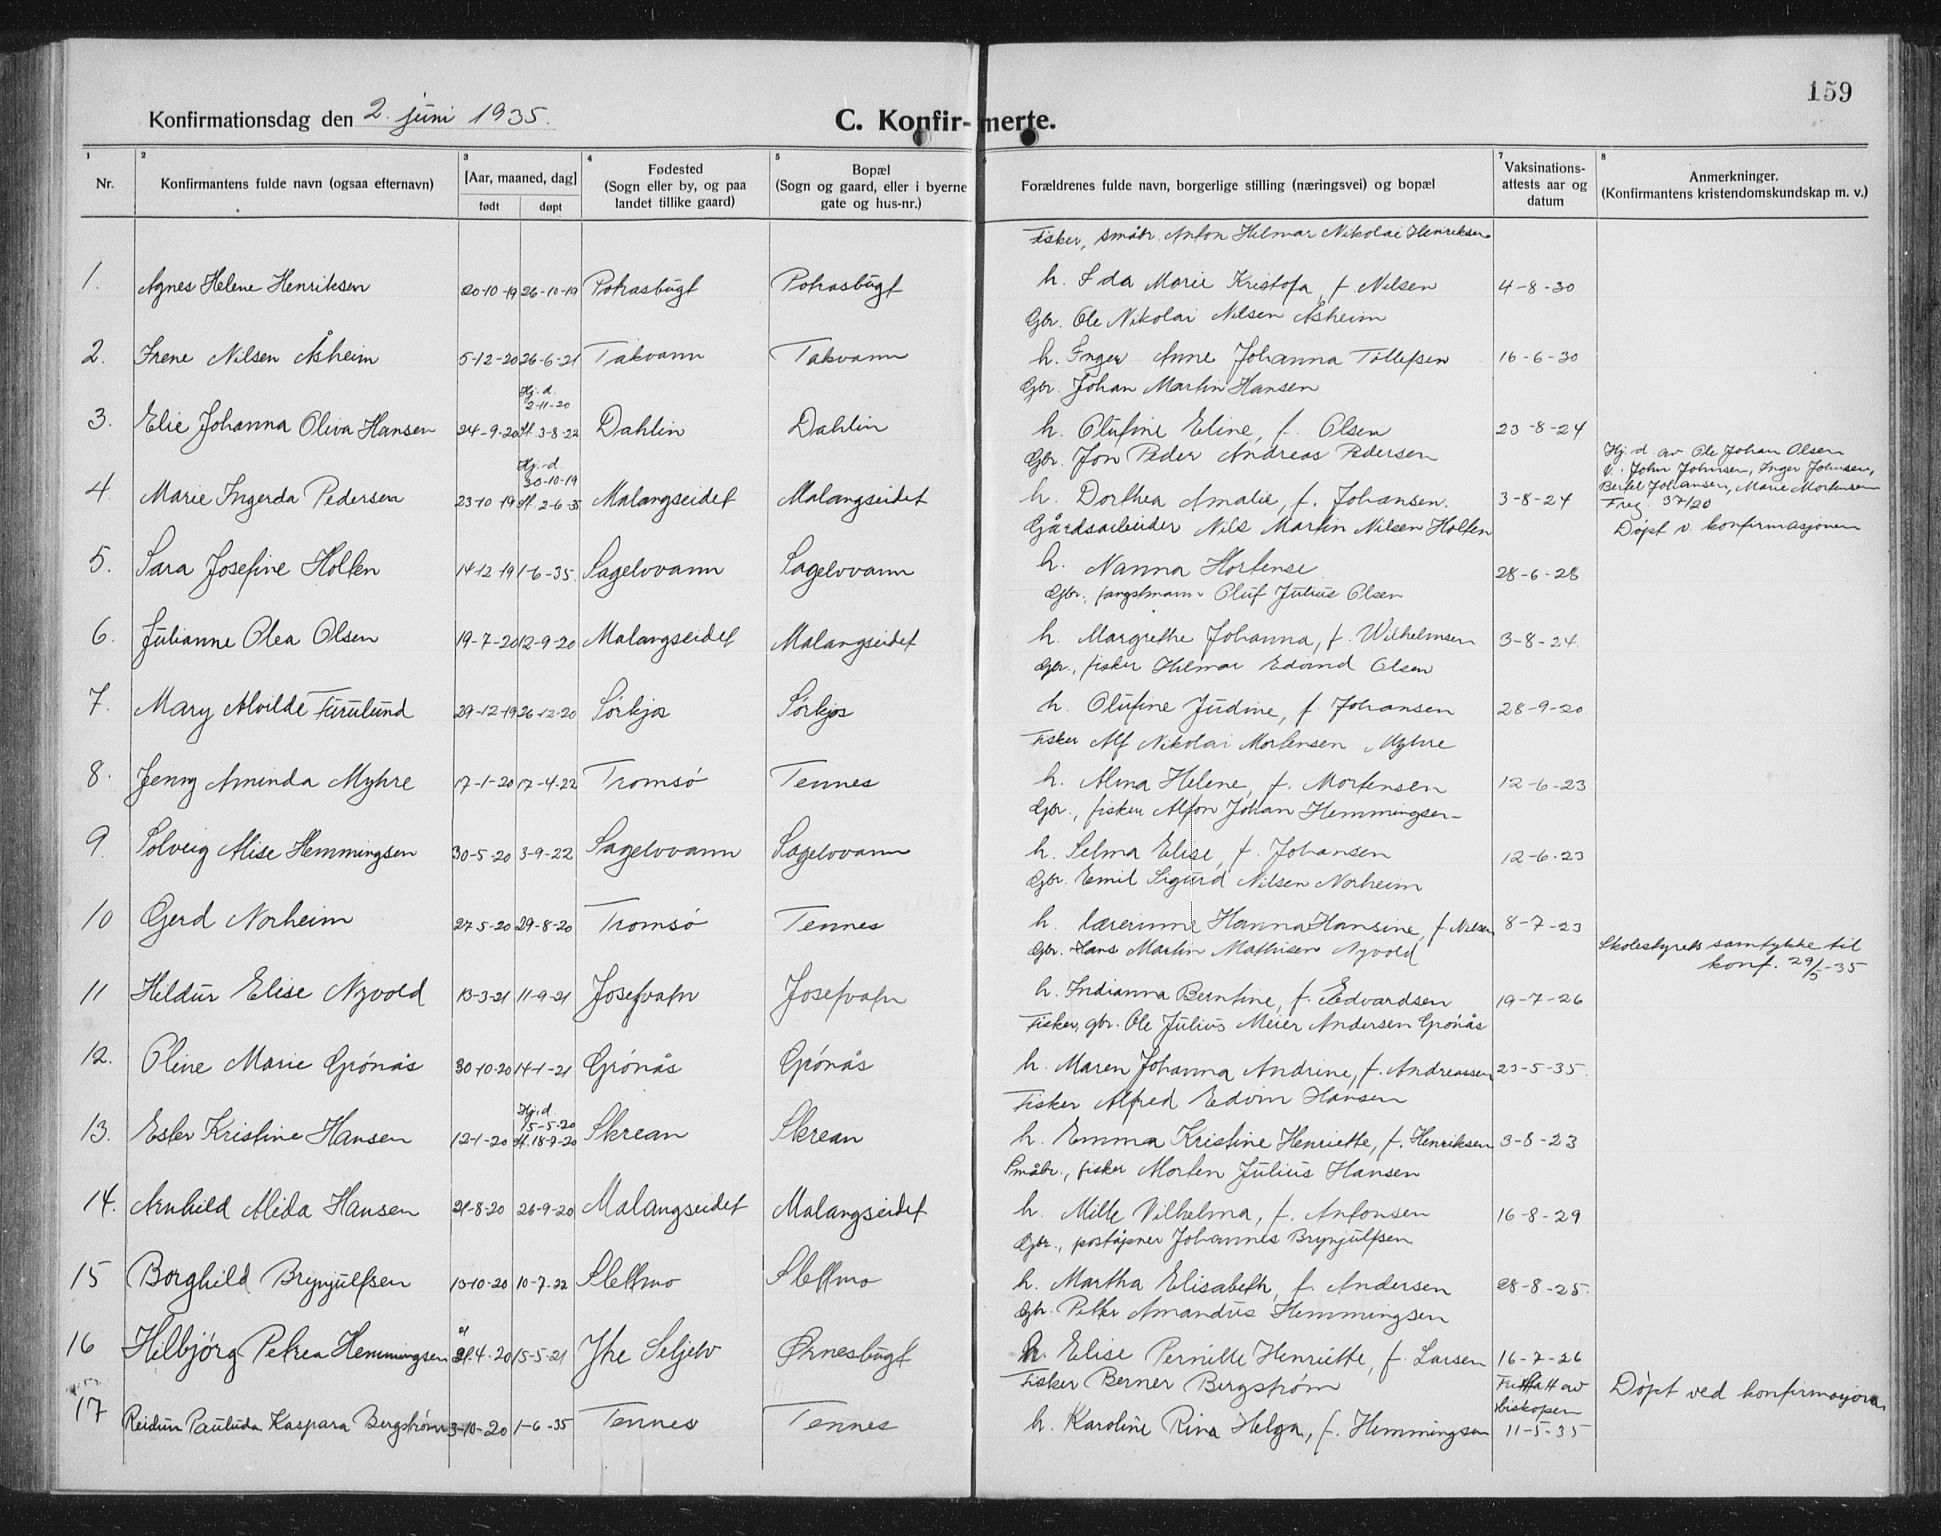 159
Konfirmationsdag den 2. juni 1935.
C. Konfirmerte.
1 2 3 4 5 6 7 8
Nr. Konfirmantens fulde navn (ogsaa efternavn) [Aar, maaned, dag] født døpt Fødested (Sogn eller by, og paa landet tillike gaard) Bopæl (Sogn og gaard, eller i byerne gate og hus-nr.) Forældrenes fulde navn, borgerlige stilling (næringsvei) og bopæl Vaksinations-attests aar og datum Anmerkninger. (Konfirmantens kristendomskundskap m. v.)
Fisker, småbr. Anton Hilmar Nikolai Henriksen
1. Agnes Helene Henriksen 20-10-19 26-10-19 Pokrasbugt Pokrasbugt h. Ida Marie Kristofa, f. Nilsen 4-8-30
Gbr. Ole Nikolai Nilsen Åsheim
2. Irene Nilsen Åsheim 5-12-20 26-6-21 Takvann Takvann h. Inger Anne Johanna Tollefsen 16-6-30
Hj. d. 2-11-20
Gbr. Johan Martin Hansen
3. Elie Johanna Oliva Hansen 24-9-20 st. 3-8-22 Dahlin Dahlin h. Olufine Eline, f. Olsen 23-8-24
Hj. d. 30-10-19
Gbr. Jon Peder Andreas Pedersen
Hj. d. av Ole Johan Olsen
v. John Johnsen, Inger Johnsen,
Bertel Johansen, Marie Mortensen
4. Marie Ingerda Pedersen 23-10-19 st. 2-6-35 Malangseidet Malangseidet h. Dorthea Amalie, f. Johansen. 3-8-24 Freg. 37/20
Gårdsarbeider Nils Martin Nilsen Holten
Døpt v. konfirmasjonen
5. Sara Josefine Holten 14-12-19 1-6-35. Sagelvvann Sagelvvann h. Nanna Hortense 28-6-28
Gbr., fangstmann Oluf Julius Olsen
6. Julianne Olea Olsen 19-7-20 12-9-20 Malangseidet Malangseidet h. Margrethe Johanna, f. Wilhelmsen 3-8-24.
Gbr., fisker Hilmar Edvind Olsen
7. Mary Alvilde Furulund 29-12-19 26-12-20 Sörkjos Sörkjos h. Olufine Judine, f. Johansen 28-9-20
Fisker Alf Nikolai Mortensen Myhre
8. Jenny Aminda Myhre 17-1-20 17-4-22 Tromsö Tennes h. Alma Helene, f. Mortensen 12-6-23
Gbr., fisker Alfon Johan Hemmingsen
9. Solveig Alise Hemmingsen 30-5-20 3-9-22 Sagelvvann Sagelvvann h. Selma Elise, f. Johansen 12-6-23
Gbr. Emil Sigurd Nilsen Norheim
10 Gerd Norheim 27-5-20 29-8-20 Tromsö Tennes h. lærerinne Hanna Hansine, f. Nilsen 8-7-23
Gbr. Hans Martin Mathisen Nyvold
Skolestyrets samtykke til
konf. 29/5-35
11 Hildur Elise Nyvold 13-3-21 11-9-21 Josefvatn Josefvatn h. Indianna Berntine, f. Edvardsen 19-7-26
Fisker, gbr. Ole Julius Meier Andersen Grönås
12. Oline Marie Grönås 30-10-20 14-1-21 Grönås Grönås h. Maren Johanna Andrine, f. Andreassen 23-5-35.
Hj. d. 15-5-20
Fisker Alfred Edvin Hansen
13. Ester Kristine Hansen 12-1-20 st. 18-7-20 Skrean Skrean h. Emma Kristine Henriette, f. Henriksen 3-8-23
Småbr., fisker Morten Julius Hansen
14. Arnhild Alida Hansen 21-8-20 26-9-20 Malangseidet Malangseidet h. Mille Vilhelma, f. Antonsen 16-8-29
Gbr., poståpner Johannes Brynjulfsen
15 Borghild Brynjulfsen 13-10-20 10-7-22 Slettmo Slettmo h. Martha Elisabeth, f. Andersen 28-8-25.
Gbr. Petter Amandus Hemmingsen
16 Hilbjörg Petrea Hemmingsen 21-4-20 15-5-21 Ytre Seljelv Ørnesbugt h. Elise Pernille Henriette, f. Larsen 16-7-26
Fisker Berner Bergström
Fritatt av
Biskopen
Döpt ved konfirmasjonen
17 Reidun Pauluda Kaspara Bergström 3-10-20 1-6-35 Tennes Tennes h. Karoline Rina Helga, f. Hemmingsen 11-5-35